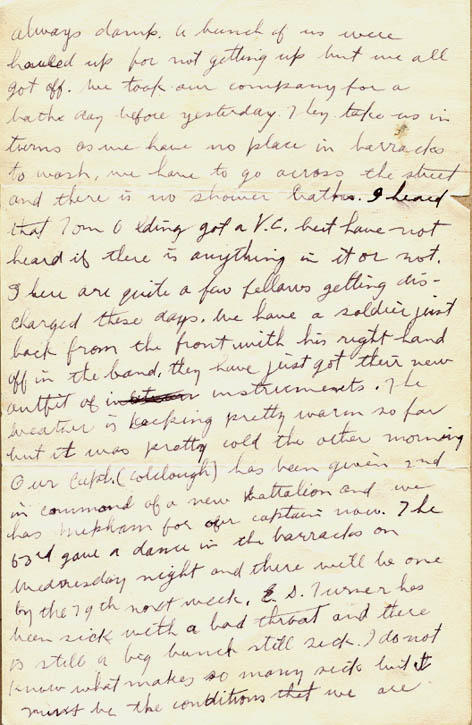 always damp. A bunch of us were
hauled up for not getting up but we all
got off. We took our company for a
bath day before yesterday. They take us in
turns as we have no place in barracks
to wash, we have to go across the street
and there is no shower baths. I heard
that Tom Olding got a V.C. but have not
heard if there is anything in it or not.
There are quite a few fellows getting dis-
charged these days. We have a soldier just
back from the front with his right hand
off in the band, they have just got their new
outfit of instruments. The
weather is keeping pretty warm so far
but it was pretty cold the other morning
Our Capt. (Colclough) has been given 2nd
in command of a new battalion and we
has Mepham for our captain now. The
63rd gave a dance in the barracks on
Wednesday night and there will be one
by the 79th next week. E. S. Turner has
been sick with a bad throat and there
is still a big bunch still sick. I do not
know what makes so many sick but it
must be the conditions that we are